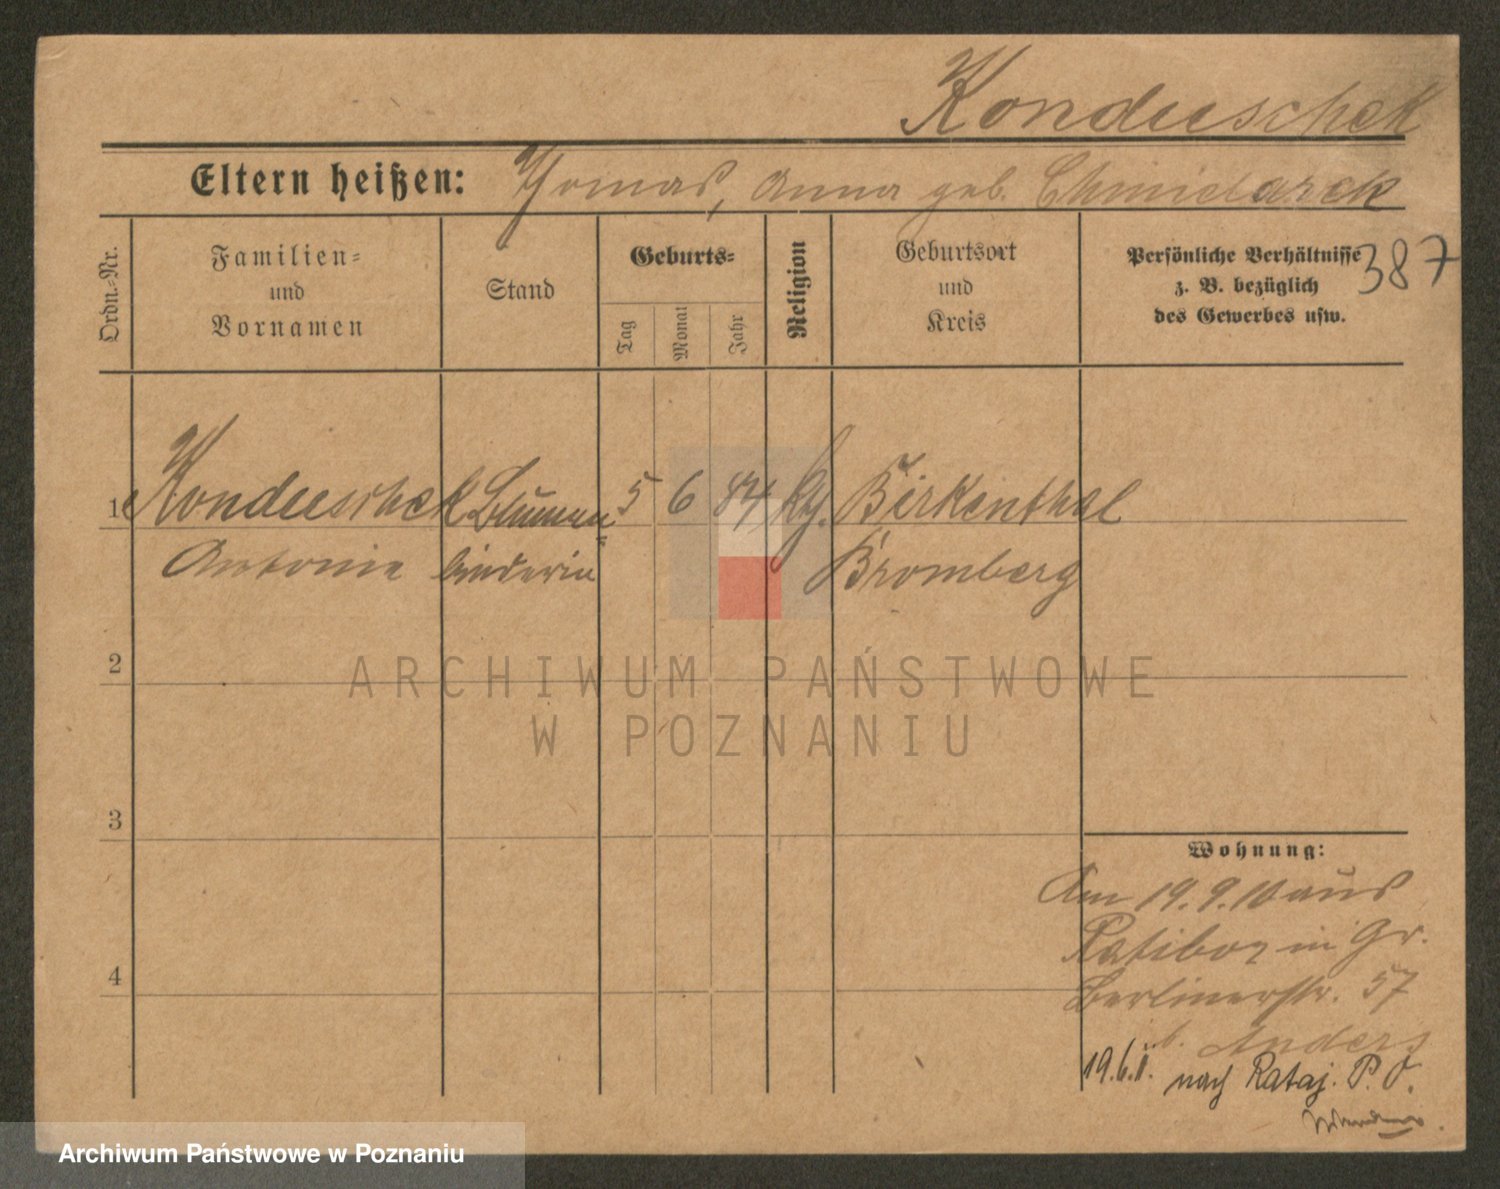 Konduschek
Eltern heißen: Thomas, Anna geb. Chmielarek
387
Ordn.-Nr.
Familien=
und
Vornamen
Stand
Geburts=
Tag
Monat
Jahr
Religion
Geburtsort
und
Kreis
Persönliche Verhältnisse
z. B. bezüglich
des Gewerbes usw.
1 Konduschek Blumen 5 6 84 kg. Birkenthal
Antonie binderin Bromberg
2
3
4
Wohnung:
Am 19.9.10 aus
Ratibor in Gr.
Berlinerstr. 57
b. Anders
19.6.11. nach Rataj. P. O.
ARCHIWUM PAŃSTWOWE
W POZNANIU
Archiwum Państwowe w Poznaniu